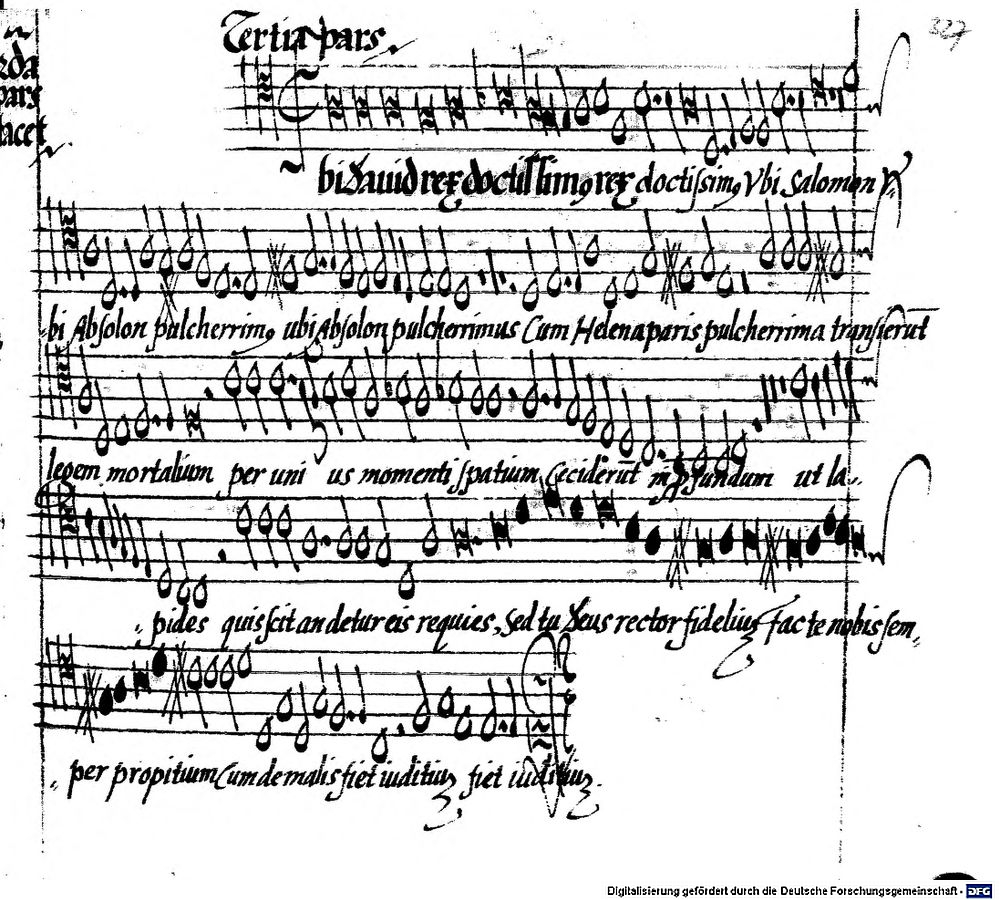 327
Tertia pars.
rda
pars
tacet
bi Dauid rex doctissimꝰ rex doctissimꝰ Vbi Salomon V
bi Absolon pulcherrimꝰ ubi Absolon pulcherrimus Cum Helena paris pulcherrima transierūt
legem mortalium per uni us momenti spatium Ceciderūt in ꝓfundum ut la..
pides quis scit an detur eis requies, Sed tu Deus rector fideliuꝫ Fac te nobis sem,,
per propitium Cum de malis fiet iuditiuꝫ fiet iuditiuꝫ.
Digitalisierung gefördert durch die Deutsche Forschungsgemeinschaft - DFG